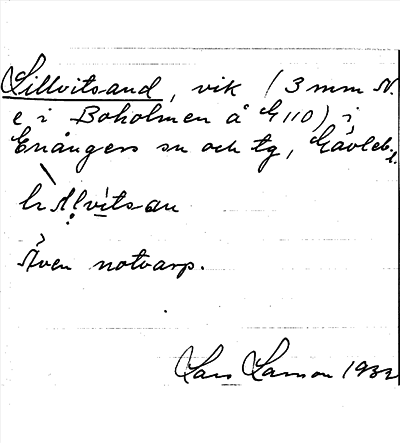 Lillvitsand, vik (3 mm N.
e i Boholmen å G 110) i
Enångers sn och tg, Gävleb. l.
Även notvarp.
Lars Larsson 1932